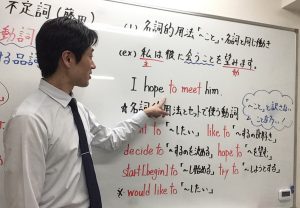 不定詞(藤田)
動詞
する品詞
(1) 名詞的用法「～こと」・名詞と同じ働き
(ex) 私は彼に会うことを望みます。
I hope to meet him
★名詞的用法とセットで使う動詞
to 「～したい」 like to
decide to 「～するのを決める」 hope to 「～を望む」
start [begin] to 「～し始める」 try to 「～しようとする」
※ would like to 「～したい」